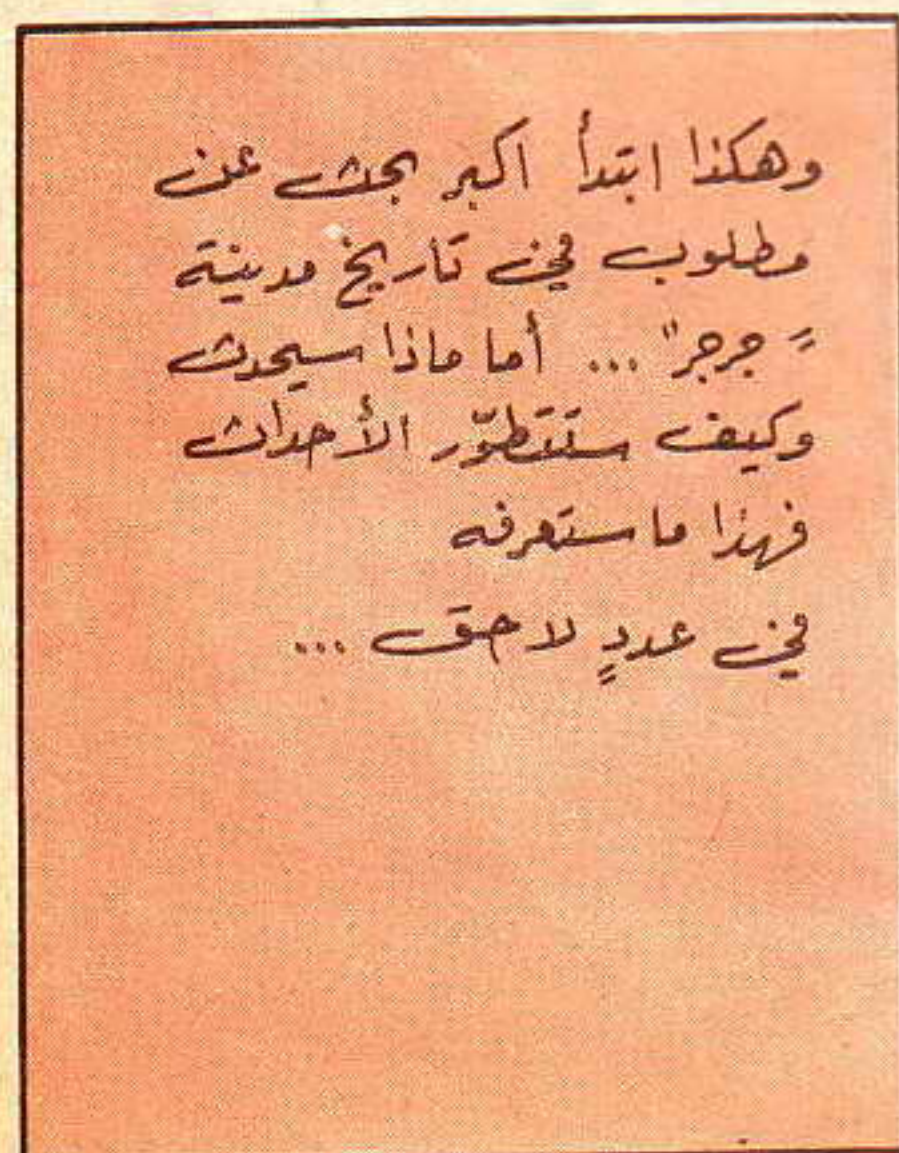 وهكذا ابتدأ اكبر بحث عن
مطلوب في تاريخ مدينة
"جرجر" ... أما ماذا سيحدث
وكيف ستتطوّر الأحداث
فهذا ما ستعرفه
في عددٍ لاحق ...